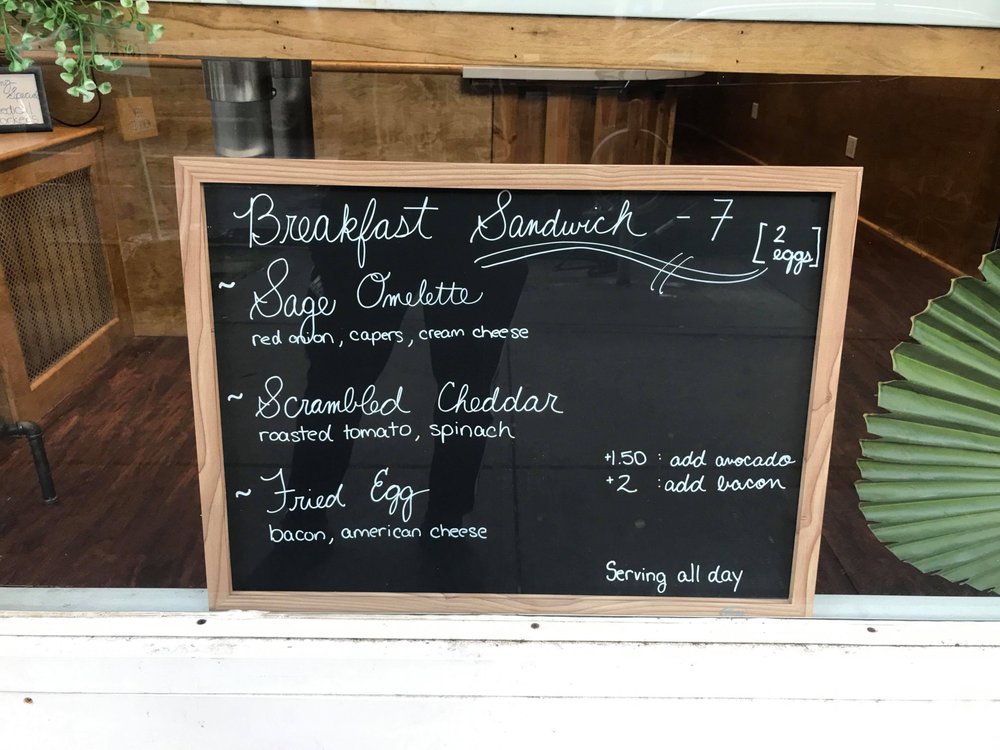 Breakfast Sandwich - 7 [2 eggs]
~ Sage Omelette
red onion, capers, cream cheese
~ Scrambled Cheddar
roasted tomato, spinach
+1.50 : add avocado
+2 : add bacon
~ Fried Egg
bacon, american cheese
Serving all day